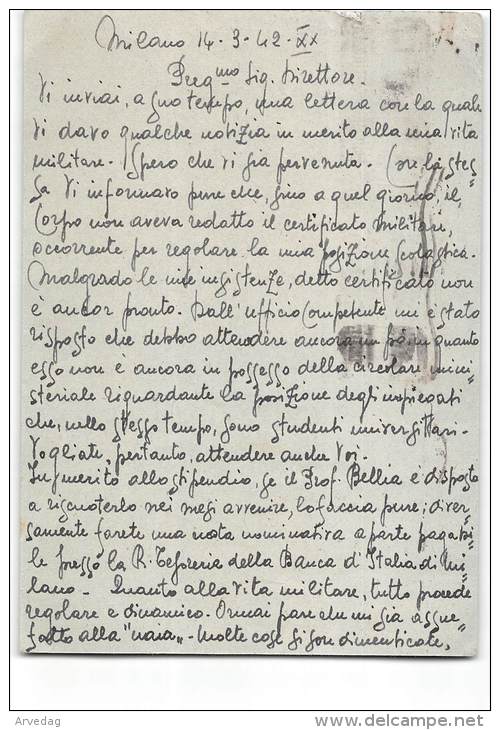 Milano 14-3-42-XX
Preg.mo Sig. Direttore.
Vi inviai, a suo tempo, una lettera con la quale
vi davo qualche notizia in merito alla mia vita
militare. Spero che vi sia pervenuta. Con la stes=
sa Vi informavo pure che, sino a quel giorno, il
Corpo non aveva redatto il certificato militare,
occorrente per regolare la mia posizione scolastica.
Malgrado le mie insistenze, detto certificato non
è ancor pronto. Dall'ufficio competente mi è stato
risposto che debbo attendere ancora un pò, in quanto
esso non è ancora in possesso della circolare mini=
steriale riguardante la posizione degli impiegati
che, nello stesso tempo, sono studenti universitari.
Vogliate, pertanto, attendere anche Voi.
In merito allo stipendio, se il Prof. Bellia è disposto
a riscuoterlo nei mesi avvenire, lo faccia pure; diver=
samente farete una nota nominativa a parte pagabi=
le presso la R. Tesoreria della Banca d'Italia di Mi=
lano - Quanto alla vita militare, tutto procede
regolare e dinamico. Ormai pare che mi sia assue=
fatto alla "naia„ - Molte cose si son dimenticate,
Arvedag
delcampe.net